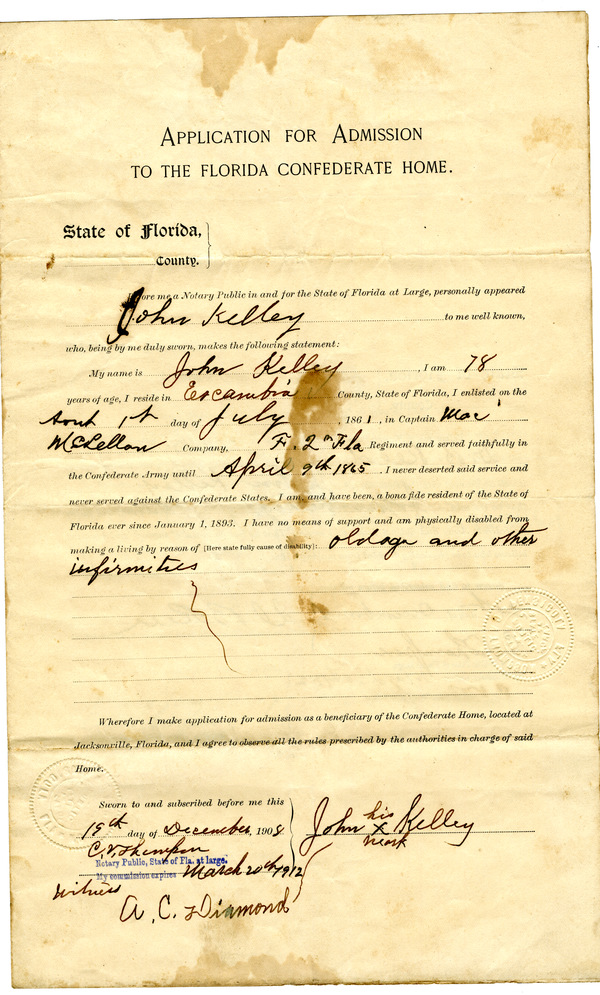 APPLICATION FOR ADMISSION
TO THE FLORIDA CONFEDERATE HOME.
State of Florida,
County.
Before me a Notary Public in and for the State of Florida at Large, personally appeared
John Kelley to me well known,
who, being by me duly sworn, makes the following statement:
My name is John Kelley, I am 78
years of age, I reside in Escambia County, State of Florida, I enlisted on the
1st day of July 1861, in Captain Mac
McLellan Company, F. 2nd Fla Regiment and served faithfully in
the Confederate Army until April 9th 1865. I never deserted said service and
never served against the Confederate States. I am, and have been, a bona fide resident of the State of
Florida ever since January 1, 1893. I have no means of support and am physically disabled from
making a living by reason of [Here state fully cause of disability]: old age and other
infirmities
Wherefore I make application for admission as a beneficiary of the Confederate Home, located at
Jacksonville, Florida, and I agree to observe all the rules prescribed by the authorities in charge of said
Home.
Sworn to and subscribed before me this
19th day of December, 1908
John his x mark Kelley
C. V. Thompson
Notary Public, State of Fla. at large.
My commission expires March 20th 1912
Witness
A. C. Diamond